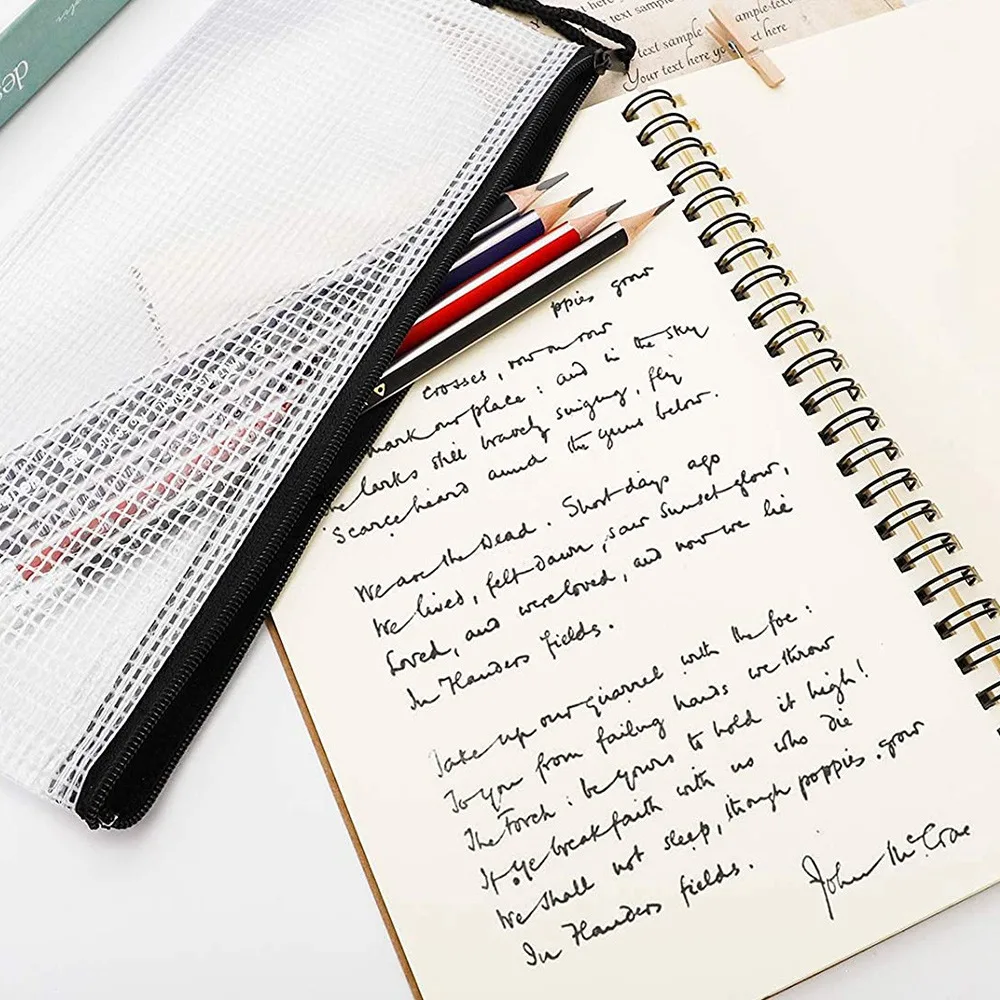 des
text here
text sample
ample-text
text sample
xt here
Your text here yo
ppies grow
crosses, row on row
mark our place: and in the sky
larks still bravely singing, fly
Scarce heard amid the guns below.
We are the Dead. Short days ago
We lived, felt dawn, saw sunset glow,
Loved, and were loved, and now we lie
In Flanders fields.
Take up our quarrel with the foe:
To you from failing hands we throw
The Torch: be yours to hold it high!
If ye break faith with us who die
We shall not sleep, though poppies grow
In Flanders fields.
John McCrae